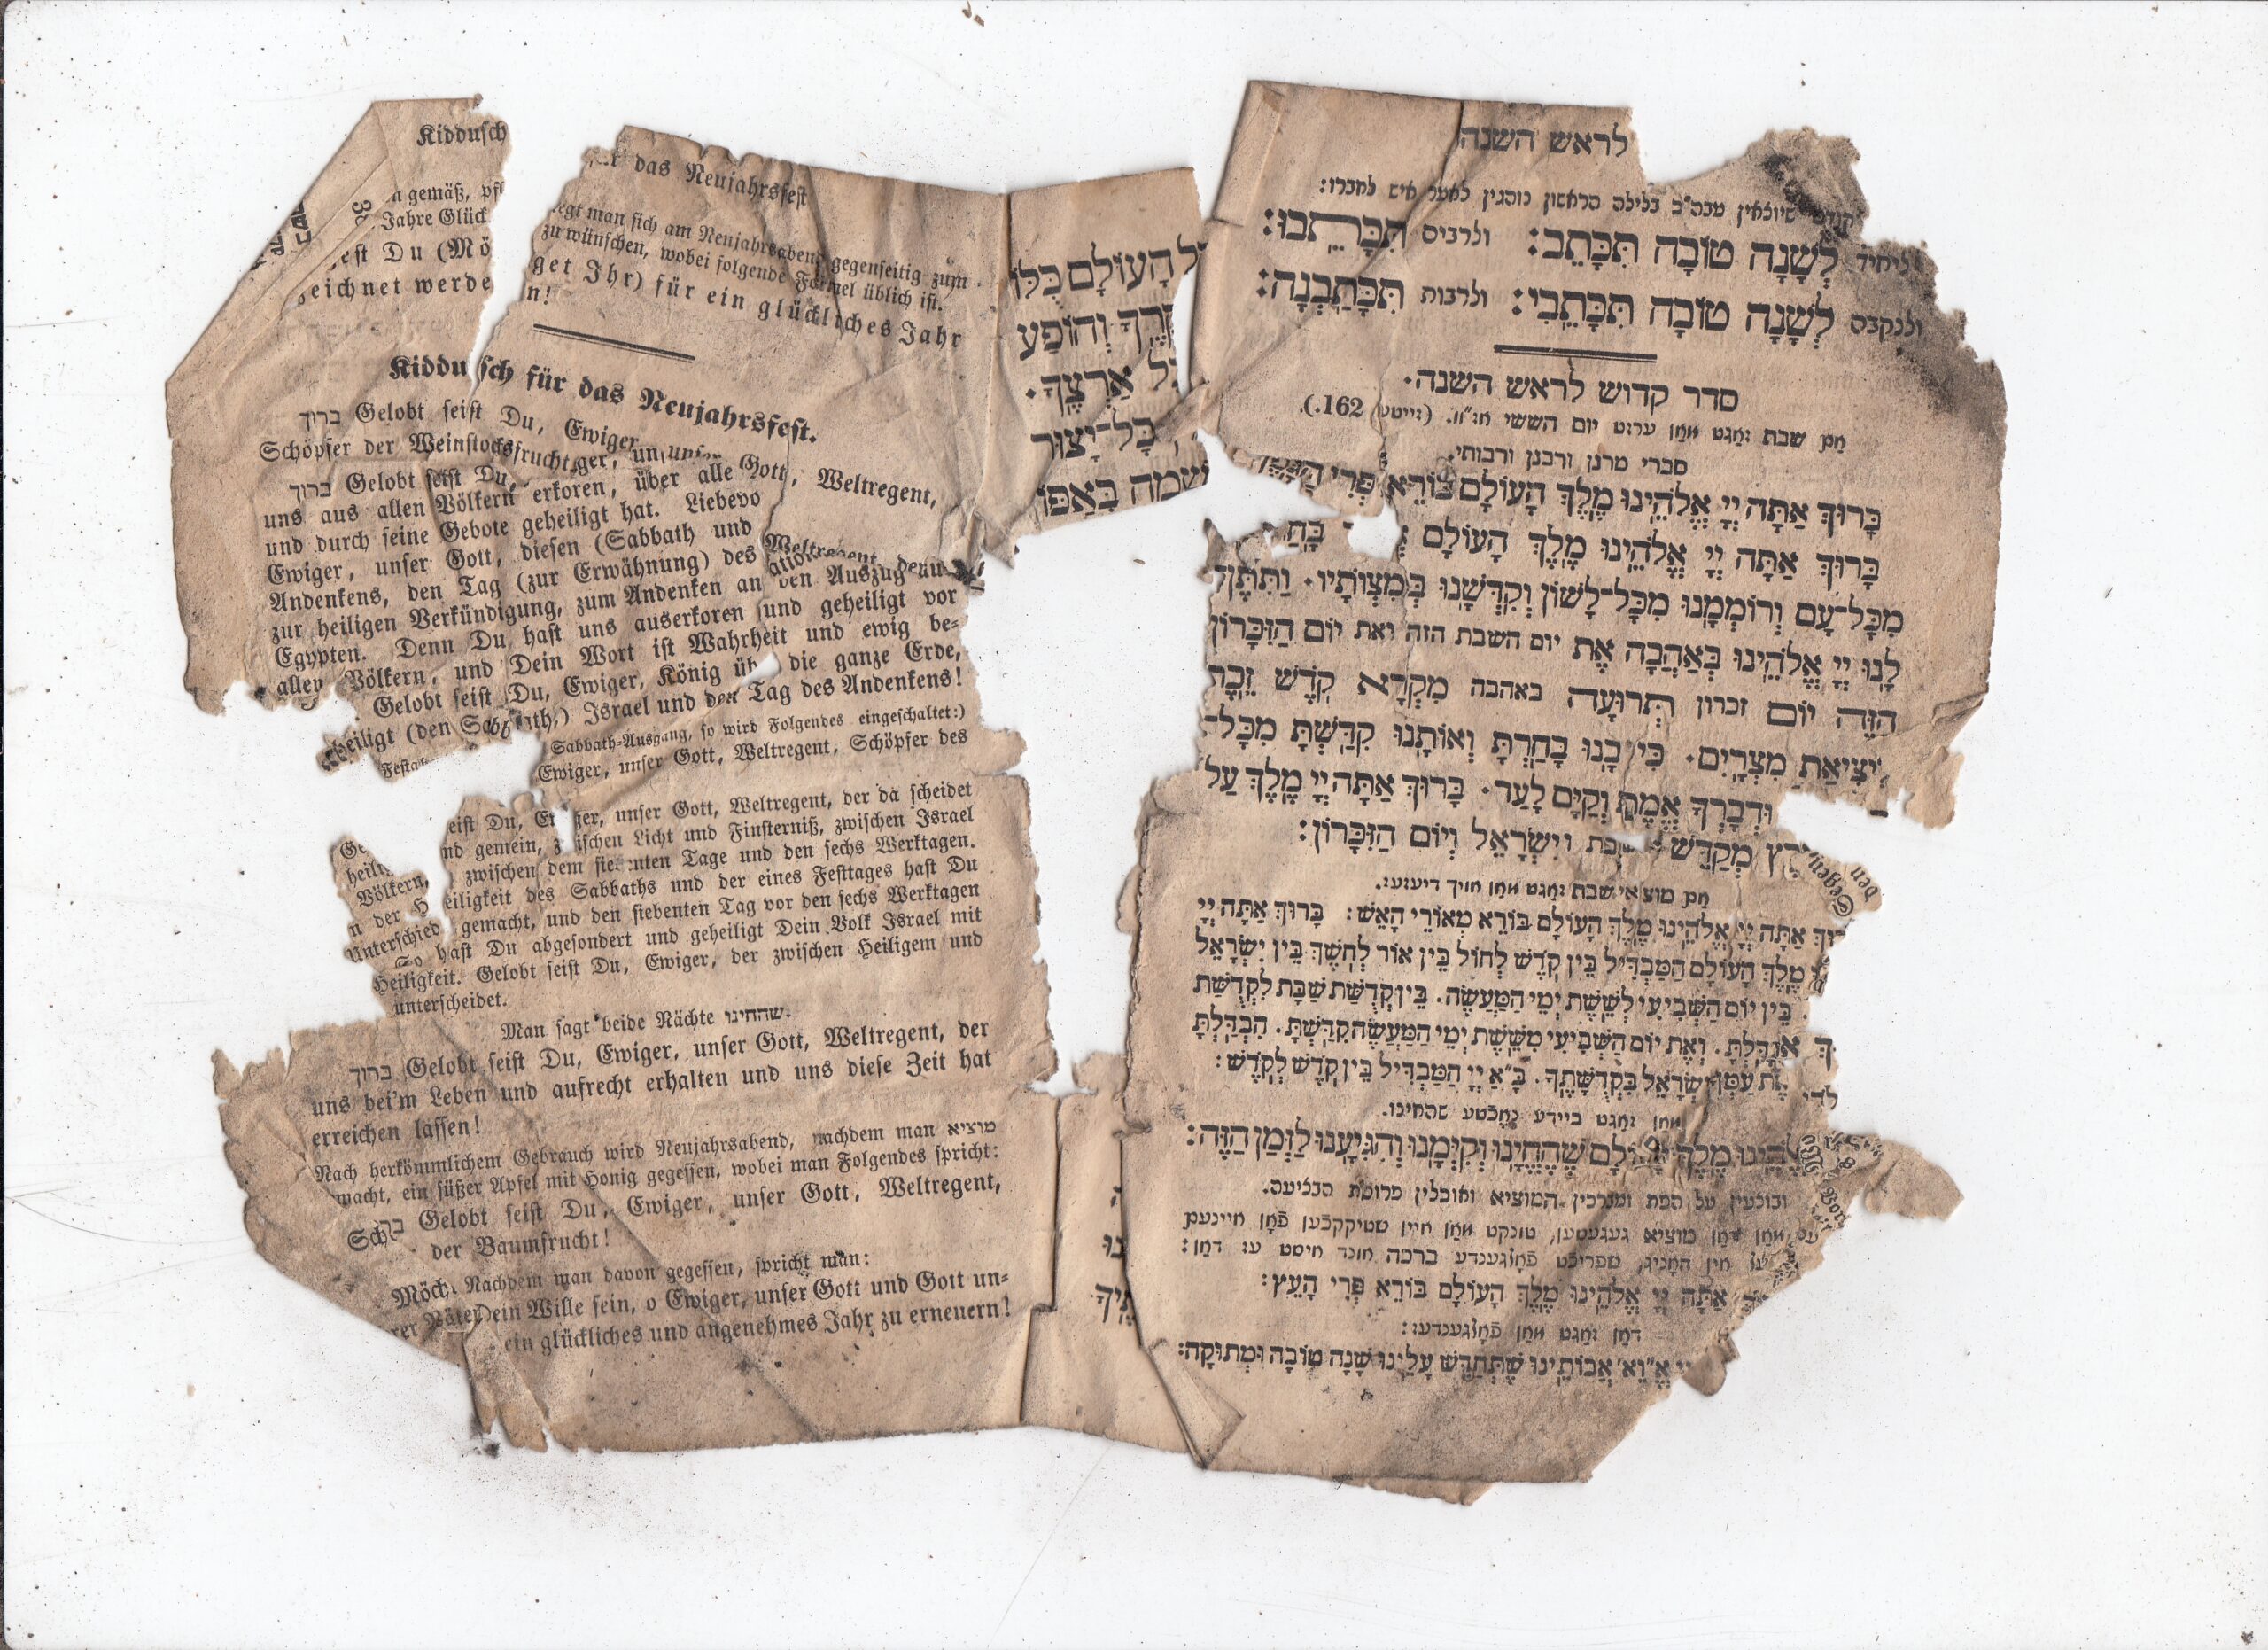 Kiddusch
das Neujahrsfest
gemäß, legt man sich am Neujahrsabend gegenseitig zum
Jahre Glück zu wünschen, wobei folgende Formel üblich ist.
Du (Mö get Ihr) für ein glückliches Jahr
eichnet werde n!
Kiddusch für das Neujahrsfest.
ברוך Gelobt seist Du, Ewiger
Schöpfer der Weinstocksfrucht
ברוך Gelobt seist Du, Gott, Weltregent,
uns aus allen Völkern erkoren, über alle
und durch seine Gebote geheiligt hat. Liebevo
Ewiger, unser Gott, diesen (Sabbath und
Andenkens, den Tag (zur Erwähnung) des
zur heiligen Verkündigung, zum Andenken an den Auszug
Egypten. Denn Du hast uns auserkoren und geheiligt vor
allen Völkern, und Dein Wort ist Wahrheit und ewig be-
Gelobt seist Du, Ewiger, König üb die ganze Erde,
heiligt (den Sabbath,) Israel und den Tag des Andenkens!
Sabbath-Ausgang, so wird Folgendes eingeschaltet:)
Ewiger, unser Gott, Weltregent, Schöpfer des
eist Du, Ewiger, unser Gott, Weltregent, der da scheidet
nd gemein, zwischen Licht und Finsterniß, zwischen Israel
Völkern, zwischen dem siebenten Tage und den sechs Werktagen.
n der Heiligkeit des Sabbaths und der eines Festtages hast Du
Unterschied gemacht, und den siebenten Tag vor den sechs Werktagen
So hast Du abgesondert und geheiligt Dein Volk Israel mit
Heiligkeit. Gelobt seist Du, Ewiger, der zwischen Heiligem und
unterscheidet.
Man sagt beide Nächte שהחינו.
ברוך Gelobt seist Du, Ewiger, unser Gott, Weltregent, der
uns bei'm Leben und aufrecht erhalten und uns diese Zeit hat
erreichen lassen!
Nach herkömmlichem Gebrauch wird Neujahrsabend, nachdem man מוציא
macht, ein süßer Apfel mit Honig gegessen, wobei man Folgendes spricht:
Gelobt seist Du, Ewiger, unser Gott, Weltregent,
Sch der Baumfrucht!
Nachdem man davon gegessen, spricht man:
Möch Dein Wille sein, o Ewiger, unser Gott und Gott un-
rer Väter ein glückliches und angenehmes Jahr zu erneuern!
ל הָעוֹלָם כֻּלּוֹ
וְהוֹפַע
אַרְצֶךָ.
כָּל־יָצוּר
שמה בְּאַפּוֹ
לראש השנה
שיוצאין מבה"כ בלילה הראשון נוהגין לאמר איש לחברו:
ליחיד לְשָׁנָה טוֹבָה תִּכָּתֵב: ולרבים תִּכָּתֵבוּ:
ולנקבה לְשָׁנָה טוֹבָה תִּכָּתֵבִי: ולרבות תִּכָּתַבְנָה:
סדר קדוש לראש השנה.
שבת זאגט מאן ערשט יום הששי (זייטע 162.)
סברי מרנן ורבנן ורבותי.
בָּרוּךְ אַתָּה יְיָ אֱלֹהֵינוּ מֶלֶךְ הָעוֹלָם בּוֹרֵא פְּרִי הַגָּפֶן
בָּרוּךְ אַתָּה יְיָ אֱלֹהֵינוּ מֶלֶךְ הָעוֹלָם
מִכָּל־עָם וְרוֹמְמָנוּ מִכָּל־לָשׁוֹן וְקִדְּשָׁנוּ בְּמִצְוֹתָיו. וַתִּתֶּן
לָנוּ יְיָ אֱלֹהֵינוּ בְּאַהֲבָה אֶת יום השבת הזה ואת יוֹם הַזִּכָּרוֹן
הַזֶּה יוֹם זכרון תְּרוּעָה באהבה מִקְרָא קֹדֶשׁ זֵכֶר
יְצִיאַת מִצְרָיִם. כִּי בָנוּ בָחַרְתָּ וְאוֹתָנוּ קִדַּשְׁתָּ מִכָּל־
וּדְבָרְךָ אֱמֶת וְקַיָּם לָעַד. בָּרוּךְ אַתָּה יְיָ מֶלֶךְ עַל
מְקַדֵּשׁ וישְׂרָאֵל וְיוֹם הַזִּכָּרוֹן:
מוצאי שבת זאגט מאן אויך דיעזע.
אַתָּה יְיָ אֱלֹהֵינוּ מֶלֶךְ הָעוֹלָם בּוֹרֵא מְאוֹרֵי הָאֵשׁ: בָּרוּךְ אַתָּה יְיָ
מֶלֶךְ הָעוֹלָם הַמַּבְדִּיל בֵּין קֹדֶשׁ לְחוֹל בֵּין אוֹר לְחֹשֶׁךְ בֵּין יִשְׂרָאֵל
בֵּין יוֹם הַשְּׁבִיעִי לְשֵׁשֶׁת יְמֵי הַמַּעֲשֶׂה. בֵּין קְדֻשַּׁת שַׁבָּת לִקְדֻשַּׁת
וְאֶת יוֹם הַשְּׁבִיעִי מִשֵּׁשֶׁת יְמֵי הַמַּעֲשֶׂה קִדַּשְׁתָּ. הִבְדַּלְתָּ
יִשְׂרָאֵל בִּקְדֻשָּׁתֶךָ. בָּ"אַ יְיָ הַמַּבְדִּיל בֵּין קֹדֶשׁ לְקֹדֶשׁ:
מאן זאגט ביידע נאכטע שהחינו.
מֶלֶךְ הָעוֹלָם שֶׁהֶחֱיָנוּ וְקִיְּמָנוּ וְהִגִּיעָנוּ לַזְּמַן הַזֶּה:
על הפת ומברכין המוציא ואוכלין פרוסת הבציעה.
מאן מוציא געגעססען, טונקט מאן איין שטיקכען פאן איינעם
אין האניג, שפריכט פאלגענדע ברכה אונד איסט עז דאן:
אַתָּה יְיָ אֱלֹהֵינוּ מֶלֶךְ הָעוֹלָם בּוֹרֵא פְּרִי הָעֵץ:
דאן זאגט מאן פאלגענדעז:
אֱ"וֵא' אֲבוֹתֵינוּ שֶׁתְּחַדֵּשׁ עָלֵינוּ שָׁנָה טוֹבָה וּמְתוּקָה: